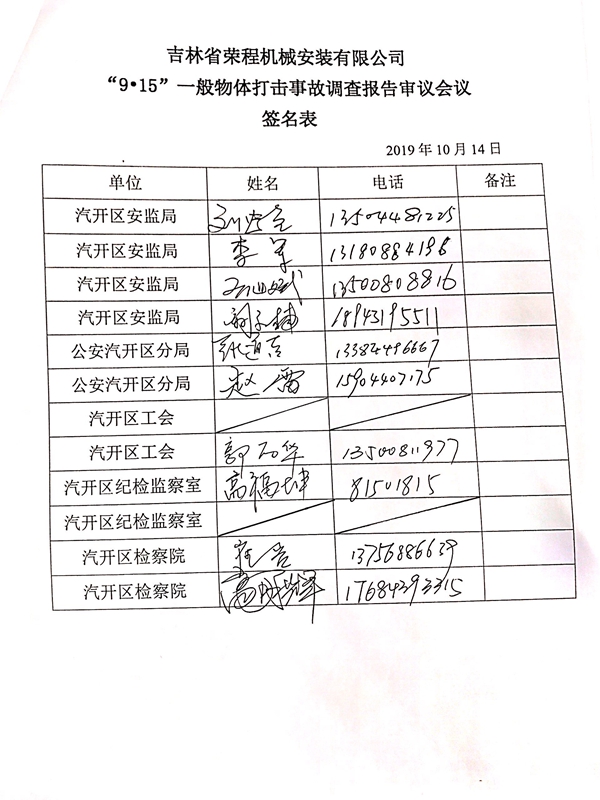 吉林省荣程机械安装有限公司
“9•15”一般物体打击事故调查报告审议会议
签名表
2019年10月14日
单位 姓名 电话 备注
汽开区安监局 13504481225
汽开区安监局 李军 13180884196
汽开区安监局 13500808816
汽开区安监局 18943195511
公安汽开区分局 13384496667
公安汽开区分局 赵雷 15904407175
汽开区工会
汽开区工会 郭石华 13500811977
汽开区纪检监察室 高福坤 81501815
汽开区纪检监察室
汽开区检察院 13756886639
汽开区检察院 17684393315